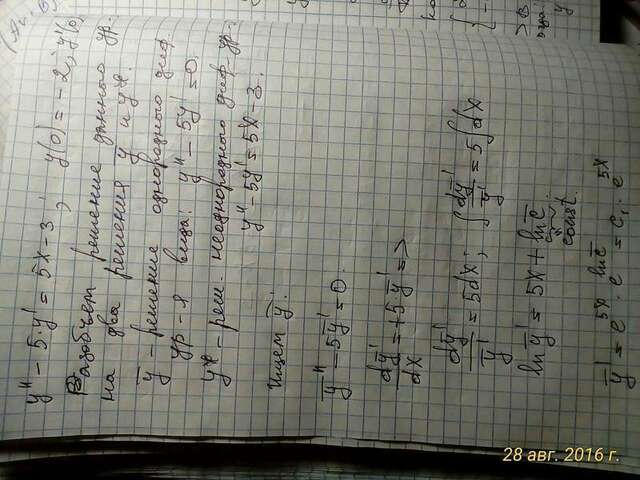 y'' - 5·y' = 5x - 3 ; y(0) = -2, y'(0
Разобьем решение данного ур.
на два решения ȳ и y*.
ȳ - решение однородного диф.
ур-я вида: y'' - 5y' = 0.
y* - реш. неоднородного диф. ур.
y'' - 5y' = 5x - 3.
Ищем ȳ:
ȳ'' - 5ȳ' = 0.
dȳ'/dx = +5·ȳ' =>
dȳ'/ȳ' = 5dx; ∫dȳ'/ȳ' = 5∫dx
ln ȳ' = 5x + ln c̄
const.
ȳ' = e^5x · e^ln c̄ = c₁ · e^5x
28 авг. 2016 г.